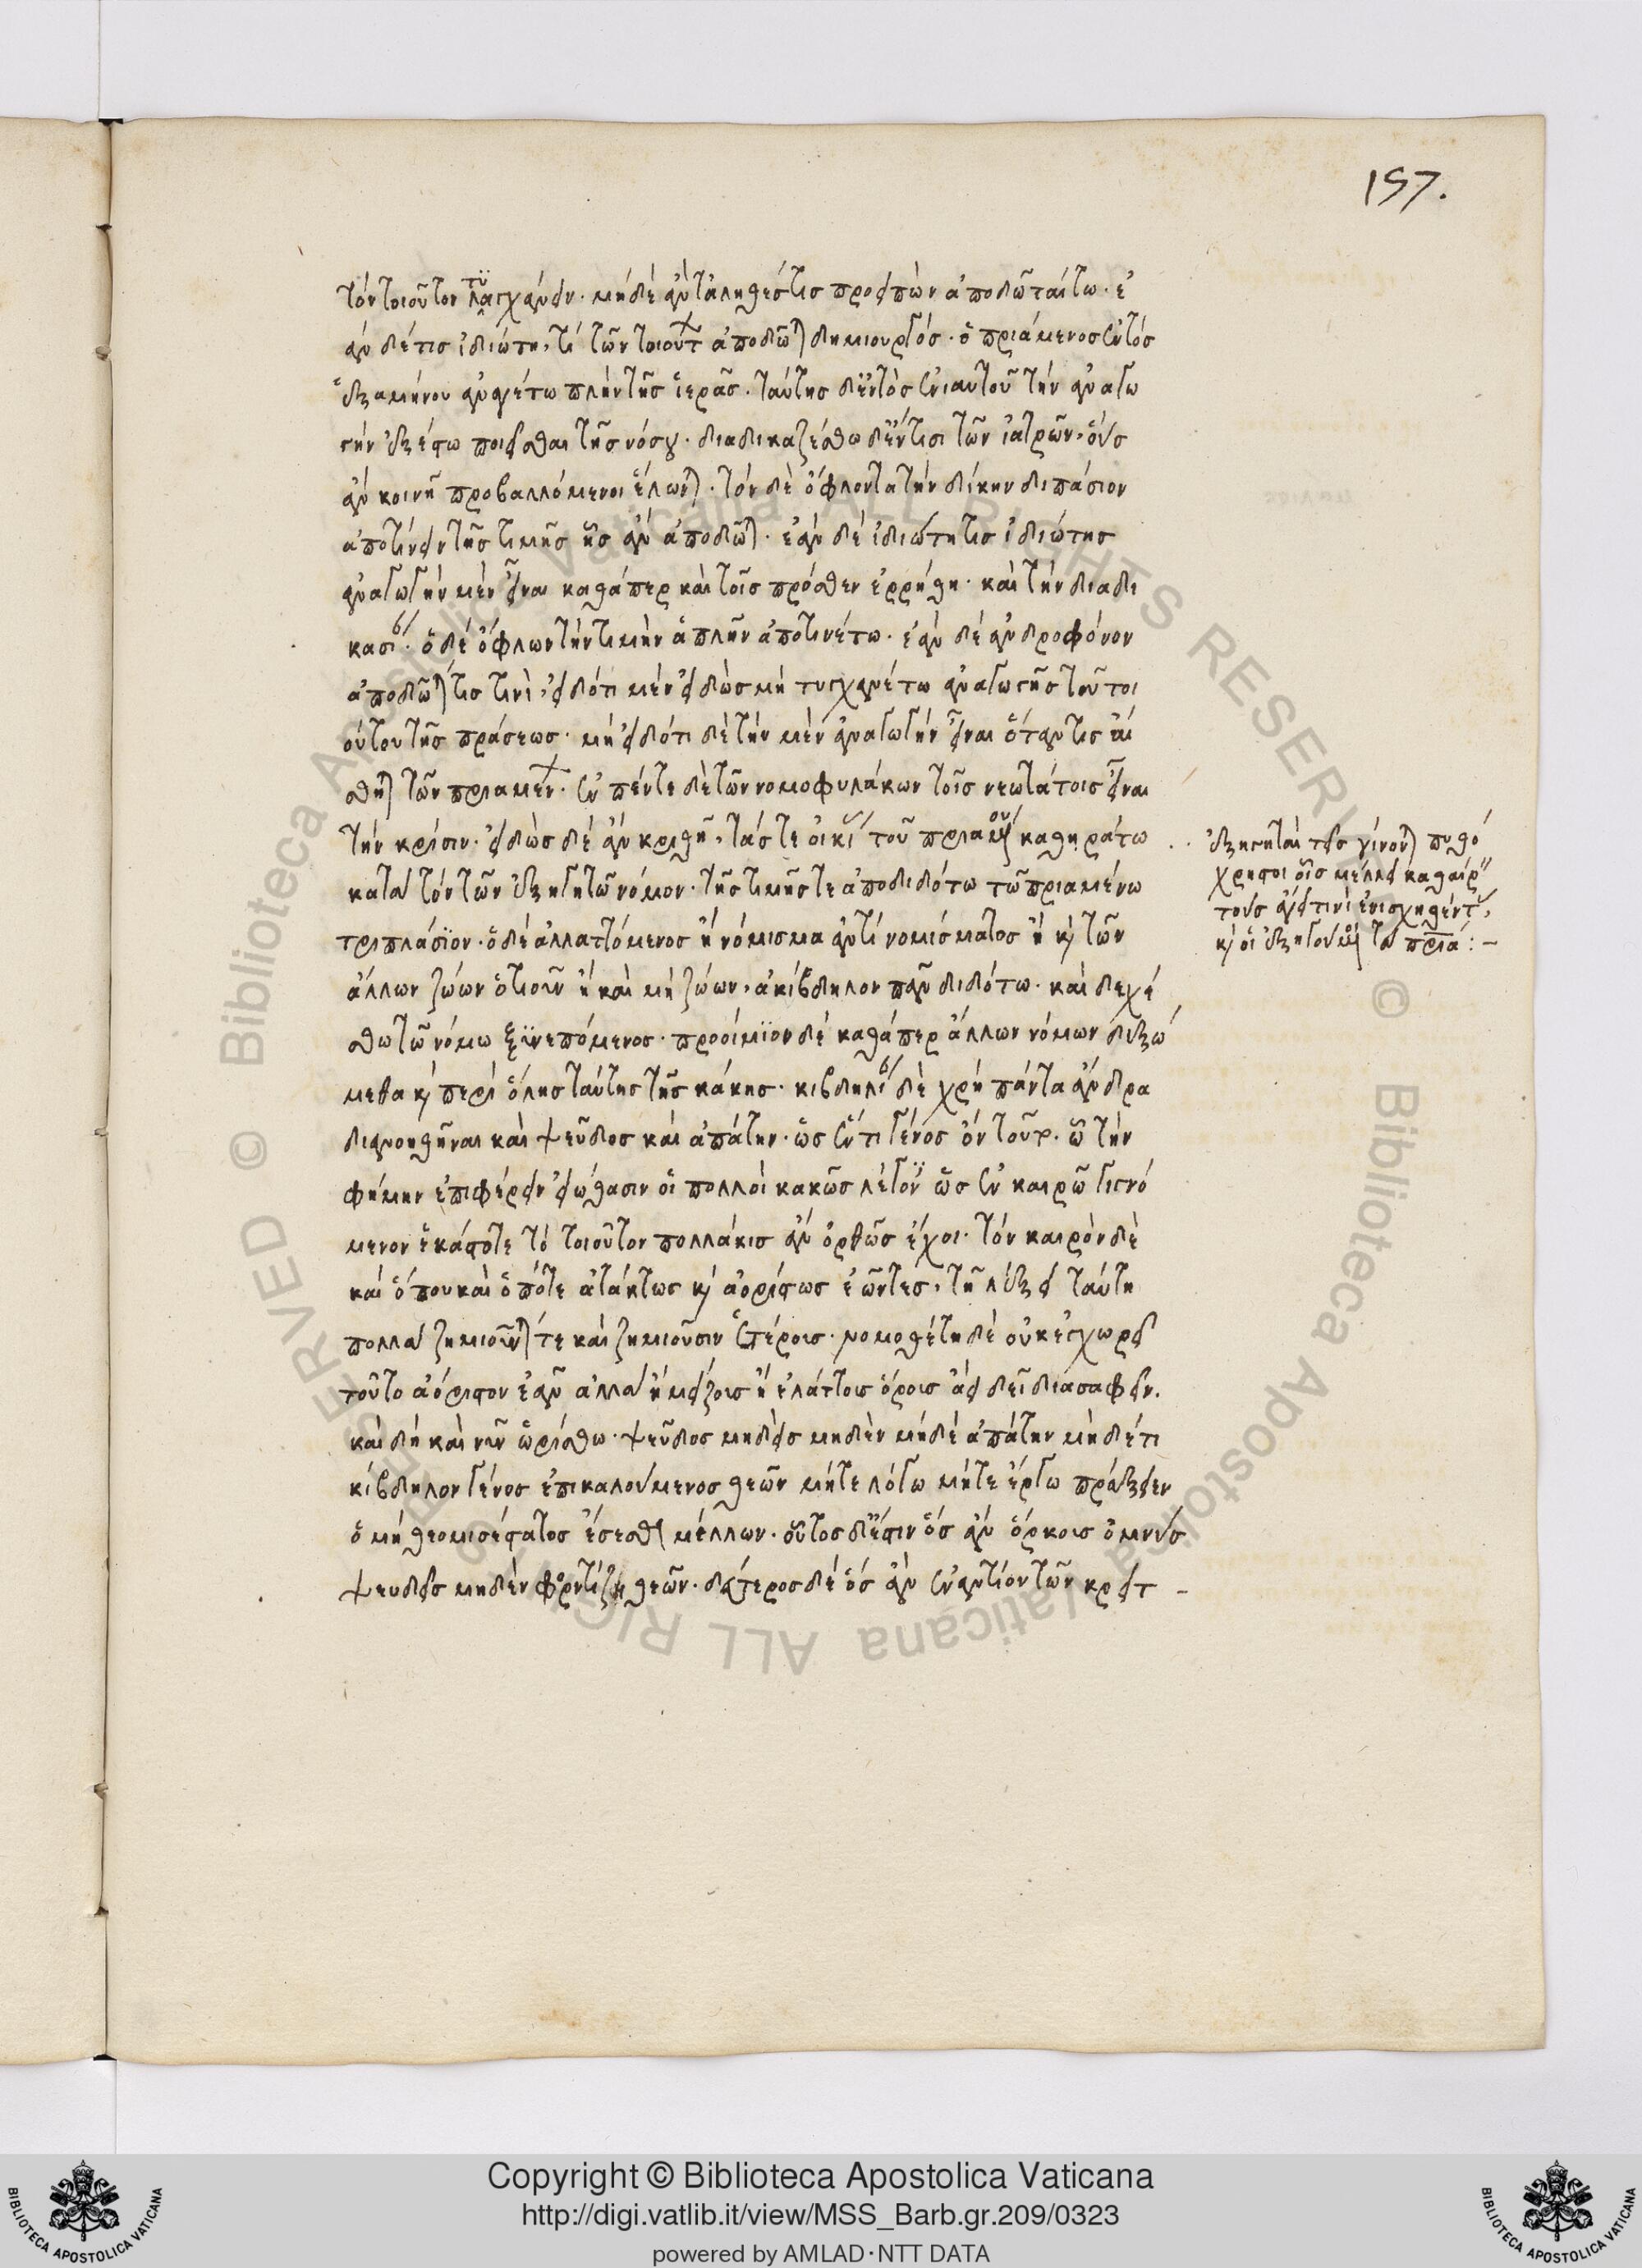 157.
τὸν τοιοῦτον λαγχάνειν. μηδὲ ἄν τἀληθές τις προσειπὼν ἀποδῶται τω. ἐ
ὰν δέ τις ἰδιώτῃ, τι τῶν τοιούτων ἀποδῶται δημιουργός. ὁ πριάμενος ἐντὸς
ἑξαμήνου ἀναγέτω πλὴν τῆς ἱερᾶς. ταύτης δ' ἐντὸς ἐνιαυτοῦ τὴν ἀναγω
γὴν ἐξέστω ποιεῖσθαι τῆς νόσου. διαδικαζέσθω δ' ἔν τισι τῶν ἰατρῶν, οὓς
ἂν κοινῇ προβαλλόμενοι ἕλωνται. τὸν δὲ ὀφλόντα τὴν δίκην διπάσιον
ἀποτίνειν τῆς τιμῆς ἧς ἂν ἀποδῶται. ἐὰν δὲ ἰδιώτῃ τις ἰδιώτης
ἀναγωγὴν μὲν εἶναι καθάπερ καὶ τοῖς πρόσθεν ἐρρήθη. καὶ τὴν διαδι
κασίαν. ὁ δὲ ὄφλων τὴν τιμὴν ἁπλῆν ἀποτινέτω. ἐὰν δὲ ἀνδροφόνον
ἀποδῶταί τις τινὶ, εἰδότι μὲν εἰδὼς μὴ τυγχανέτω ἀναγωγῆς τοῦ τοι
ούτου τῆς πράσεως. μὴ εἰδότι δὲ τὴν μὲν ἀναγωγὴν εἶναι ὅταν τις αἴ
σθηται τῶν πριαμένων. ἐν πέντε δὲ τῶν νομοφυλάκων τοῖς νεωτάτοις εἶναι
τὴν κρίσιν. εἰδὼς δὲ ἂν κριθῇ, τάς τε οἰκίας τοῦ πριαμένου καθηράτω
κατὰ τὸν τῶν ἐξηγητῶν νόμον. τῆς τιμῆς τε ἀποδιδότω τῷ πριαμένω
τριπλάσιον. ὁ δὲ ἀλλαττόμενος ἢ νόμισμα ἀντὶ νομίσματος ἢ καὶ τῶν
ἄλλων ζώων ὁτιοῦν ἢ καὶ μὴ ζώων, ἀκίβδηλον πᾶν διδότω. καὶ δεχέ
σθω τῷ νόμω ξυνεπόμενος. προοίμιον δὲ καθάπερ ἄλλων νόμων δεξώ
μεθα καὶ περὶ ὅλης ταύτης τῆς κάκης. κιβδηλίαν δὲ χρὴ πάντα ἄνδρα
διανοηθῆναι καὶ ψεῦδος καὶ ἀπάτην. ὡς ἕν τι γένος ὂν τοῦτο. ᾧ τὴν
φήμην ἐπιφέρειν εἰώθασιν οἱ πολλοὶ κακῶς λέγοντες ὡς ἐν καιρῷ γιγνό
μενον ἑκάστοτε τὸ τοιοῦτον πολλάκις ἂν ὀρθῶς ἔχοι. τὸν καιρὸν δὲ
καὶ ὅπου καὶ ὁπότε ἀτάκτως καὶ ἀορίστως ἐῶντες, τῇ λέξει ταύτῃ
πολλὰ ζημιοῦνταί τε καὶ ζημιοῦσιν ἑτέροις. νομοθέτῃ δὲ οὐκ ἐγχωρεῖ
τοῦτο ἀόριστον ἐᾶν ἀλλὰ ἢ μείζους ἢ ἐλάττους ὅρους ἀεὶ δεῖ διασαφεῖν.
καὶ δὴ καὶ νῦν ὡρίσθω. ψεῦδος μηδεὶς μηδὲν μηδὲ ἀπάτην μηδέ τι
κίβδηλον γένος ἐπικαλούμενος θεῶν μήτε λόγῳ μήτε ἔργῳ πράξειεν
ὁ μὴ θεομισέστατος ἔσεσθαι μέλλων. οὗτος δ' ἔστιν ὃς ἂν ὅρκους ὀμνὺς
ψευδεῖς μηδὲν φροντίζῃ θεῶν. δεύτερος δὲ ὃς ἂν ἐναντίον τῶν κρειτ -
ἐξηγηταὶ τρεῖς γίνονται πυθό
χρηστοι οἷς μέλει καθαίρειν
τοὺς ἄγει τινὶ ἐνισχηθέντας,
καὶ οἱ ἐξηγούμενοι τὰ πάτρια : -
Copyright © Biblioteca Apostolica Vaticana
http://digi.vatlib.it/view/MSS_Barb.gr.209/0323
powered by AMLAD·NTT DATA
BIBLIOTECA APOSTOLICA VATICANA
BIBLIOTECA APOSTOLICA VATICANA
© Biblioteca Apostolica Vaticana ALL RIGHTS RESERVED
© Biblioteca Apostolica Vaticana ALL RIGHTS RESERVED